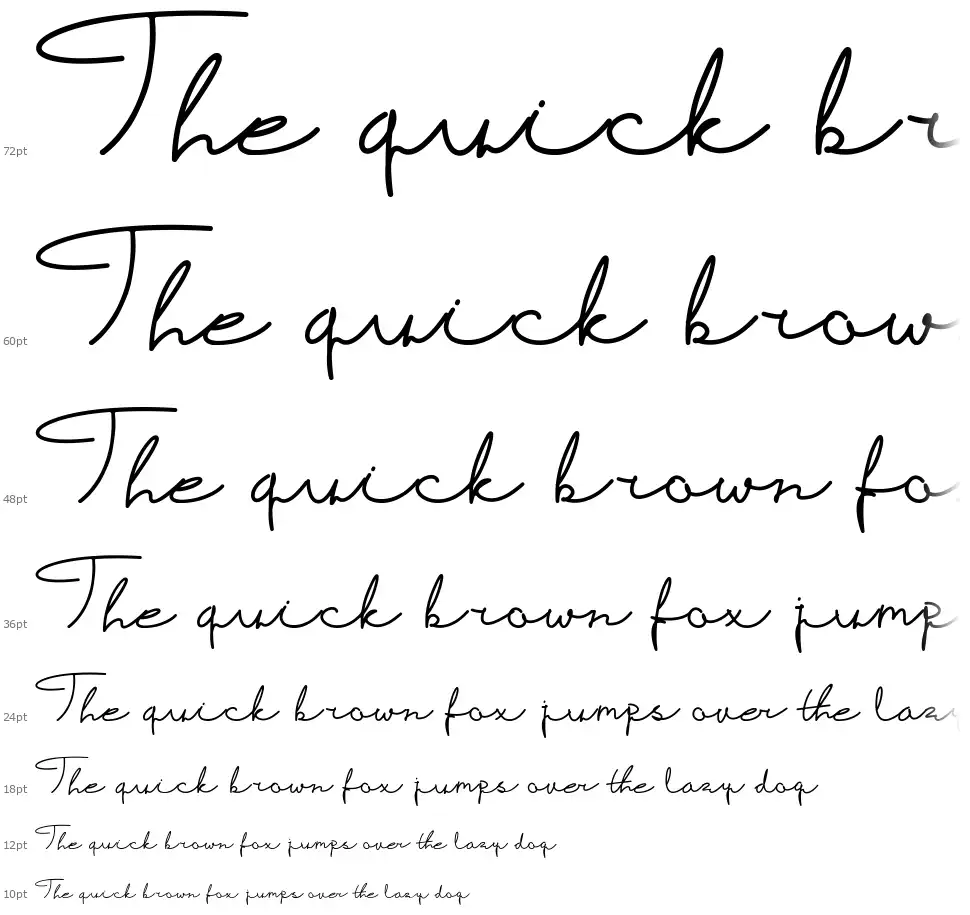 72pt The quick br
60pt The quick brow
48pt The quick brown fo
36pt The quick brown fox jump
24pt The quick brown fox jumps over the lazy
18pt The quick brown fox jumps over the lazy dog
12pt The quick brown fox jumps over the lazy dog
10pt The quick brown fox jumps over the lazy dog